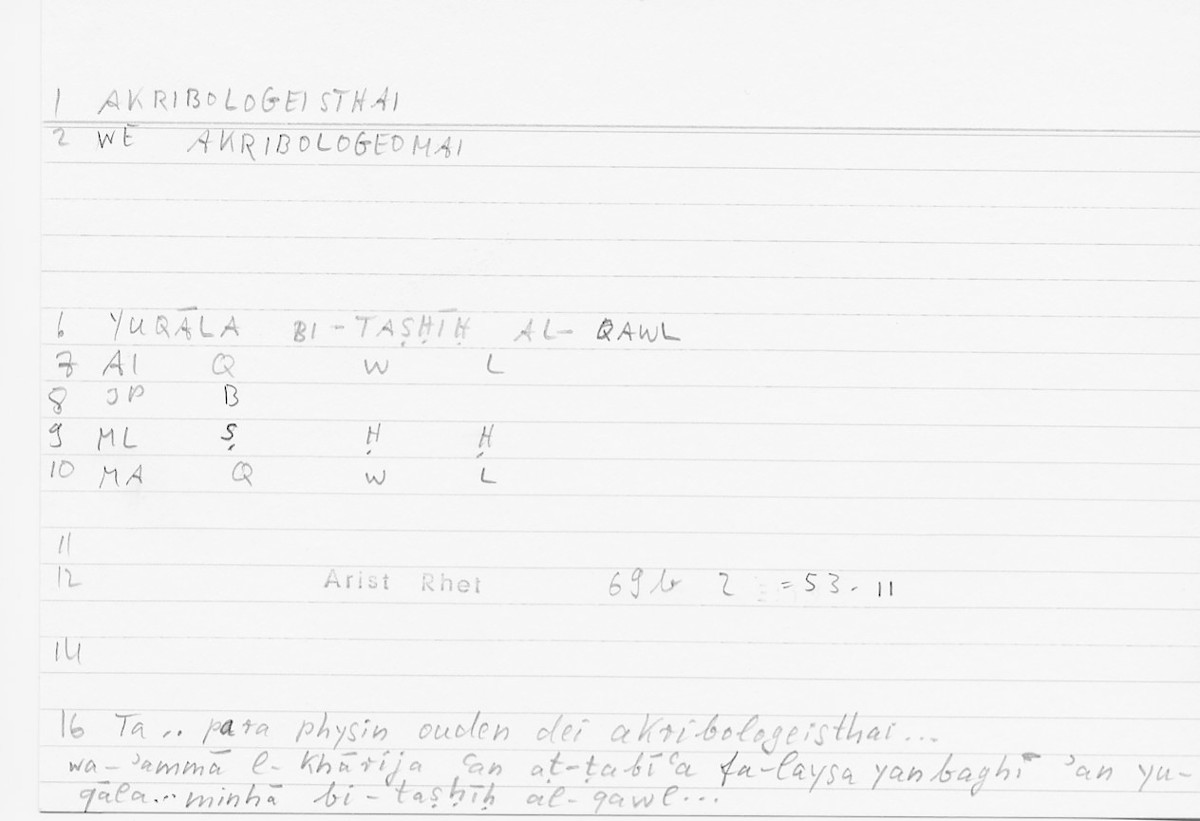 1 AKRIBOLOGEISTHAI
2 WE AKRIBOLOGEOMAI
6 YUQĀLA BI-TAṢḤĪḤ AL-QAWL
7 AI Q W L
8 JP B
9 ML Ṣ Ḥ Ḥ
10 MA Q W L
11
12 Arist Rhet 69b 2 =53.11
14
16 Ta .. para physin ouden dei akribologeisthai...
wa-ʾammā l-khārija ʿan aṭ-ṭabīʿa fa-laysa yanbaghī ʾan yu-
qāla... minhā bi-taṣḥīḥ al-qawl...